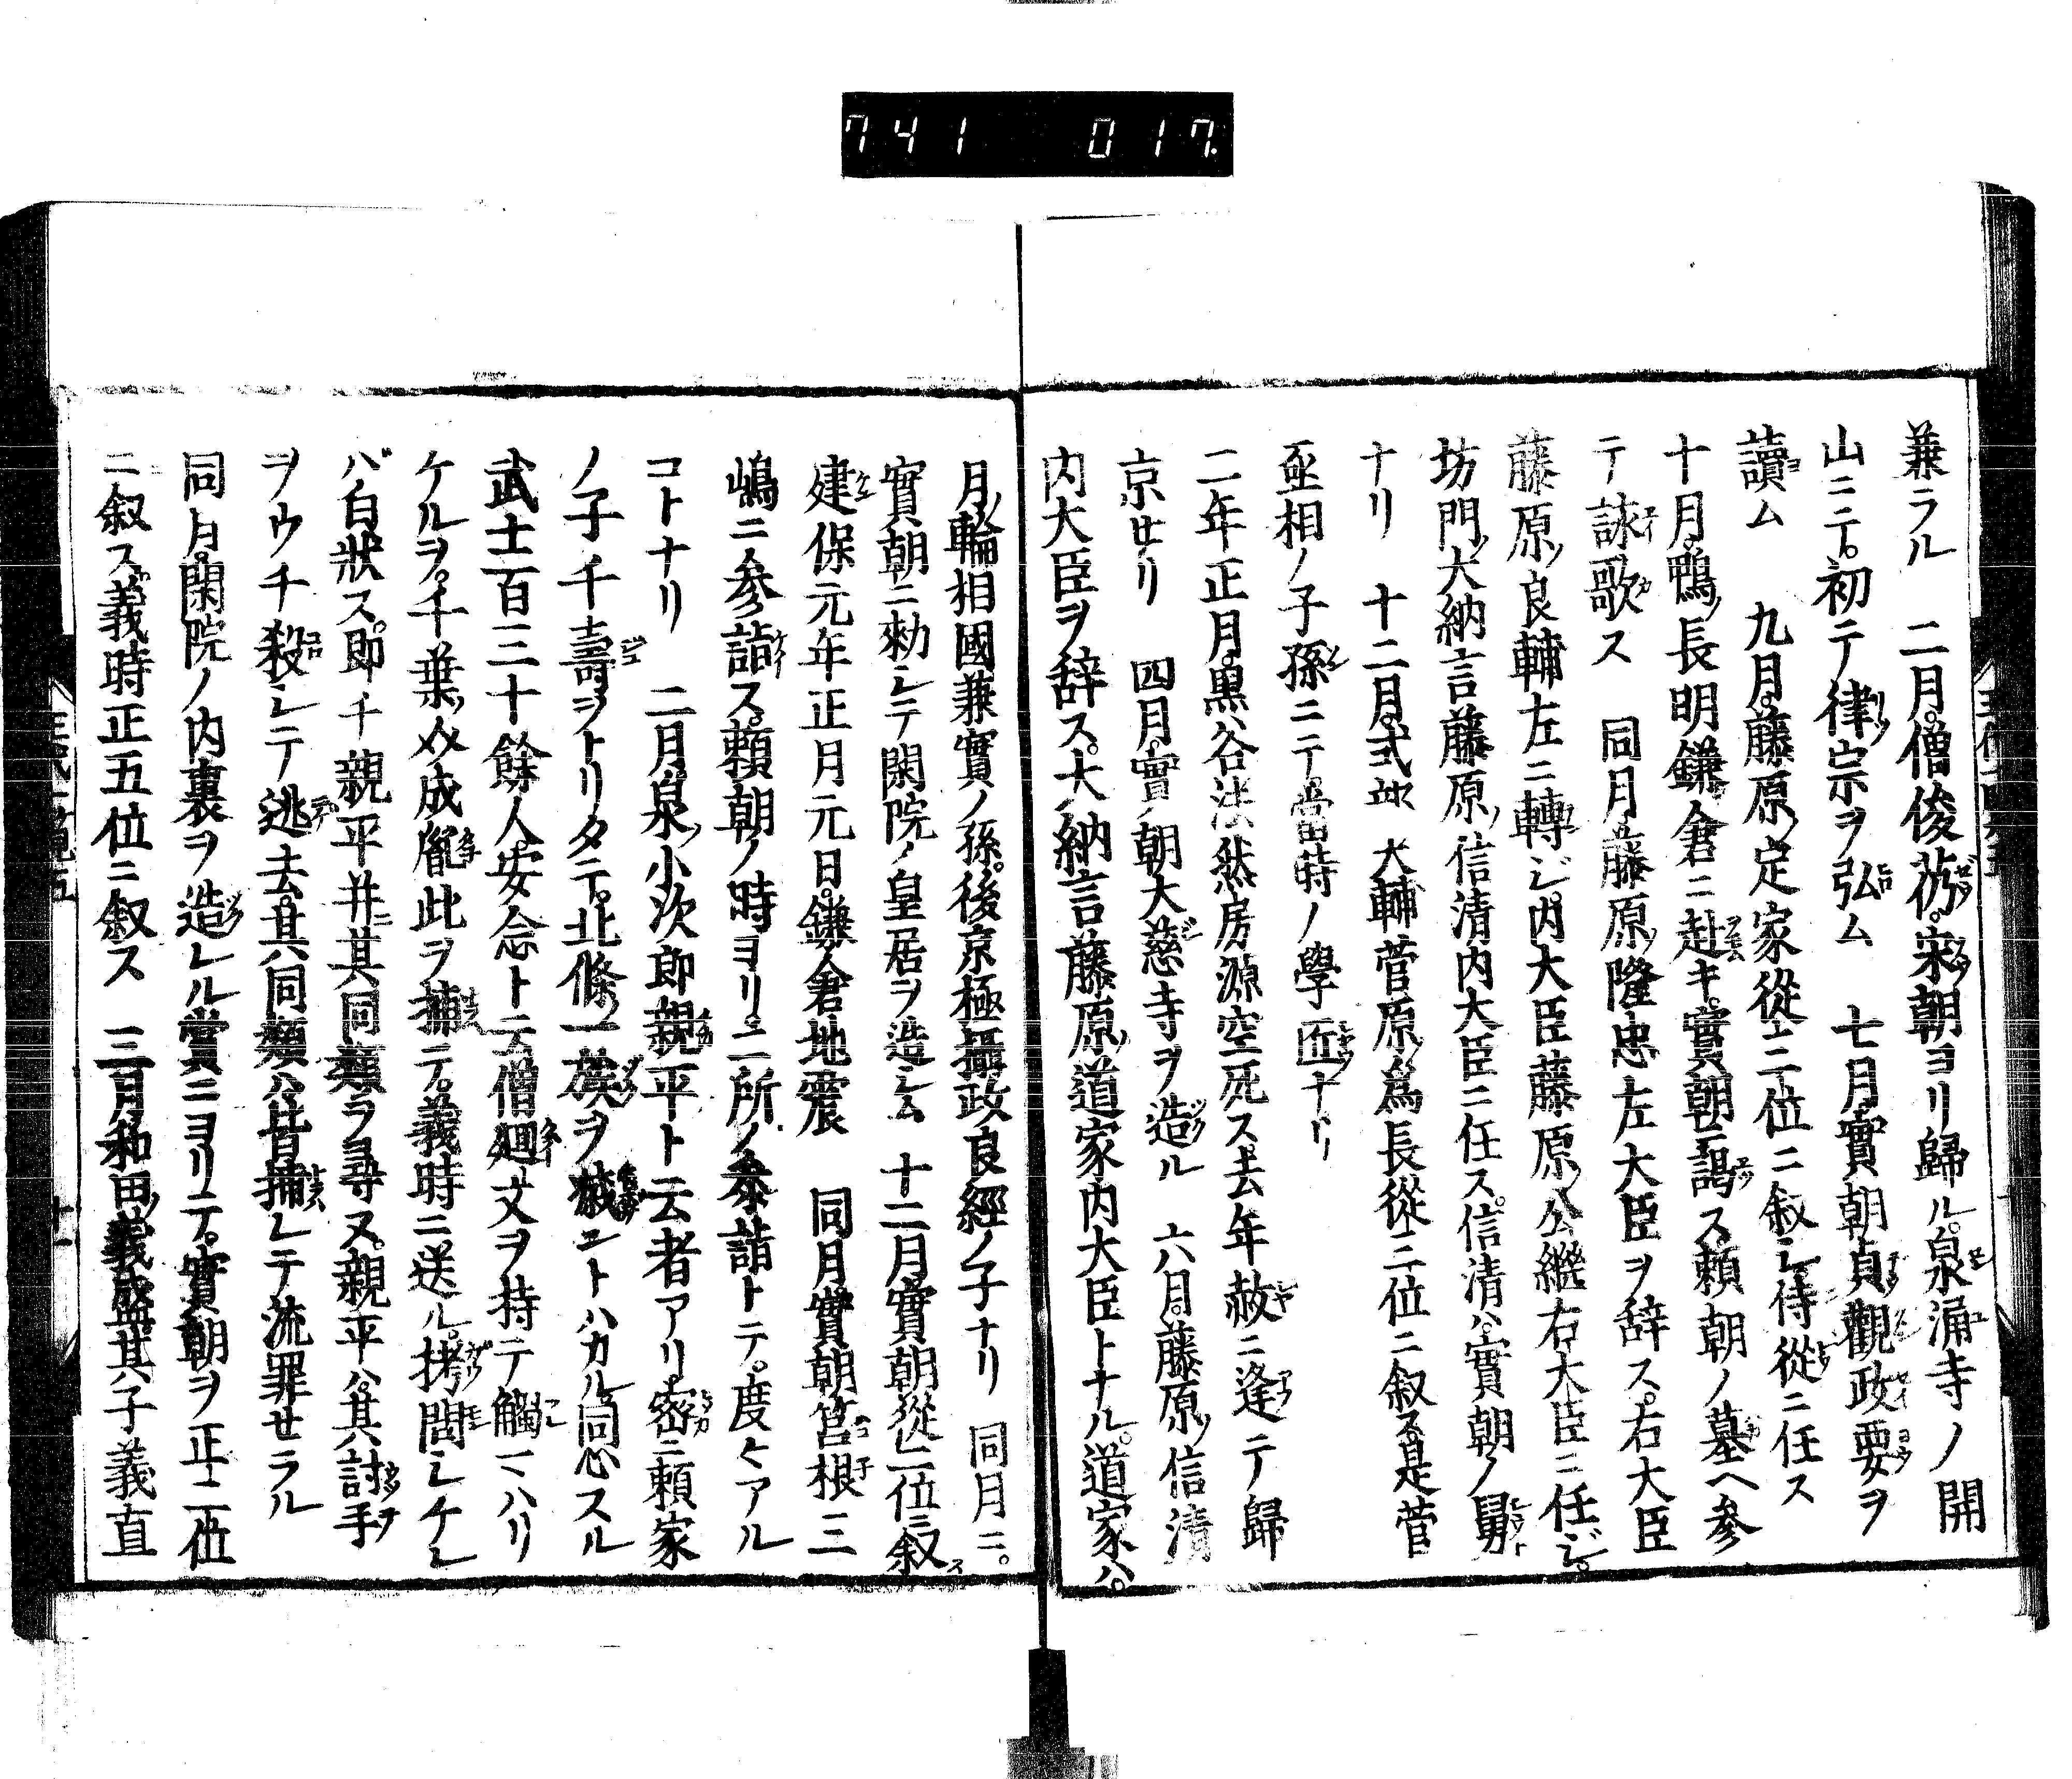 741 017
兼ラル 二月。僧俊芿。宋朝ヨリ歸ル。泉涌寺ノ開
山ニテ。初テ律宗ヲ弘ム 七月實朝貞觀政要ヲ
讀ム 九月。藤原ノ定家從三位ニ叙シ侍從ニ任ス
十月。鴨ノ長明鎌倉ニ赴キ。實朝ニ謁ス頼朝ノ墓ヘ參
テ詠歌ス 同月藤原ノ隆忠左大臣ヲ辞ス。右大臣
藤原ノ良輔左ニ轉ジ。内大臣藤原ノ公繼右大臣ニ任ジ。
坊門ノ大納言藤原ノ信清内大臣ニ任ス。信清ハ。實朝ノ舅
ナリ 十二月。式部大輔菅原ノ爲長從三位ニ叙ス。是菅
丞相ノ子孫ニテ當時ノ學匠ナリ
二年正月。黒谷法然房源空死ス。去年赦ニ逢テ歸
京せリ 四月。實朝大慈寺ヲ造ル 六月。藤原ノ信清
内大臣ヲ辞ス。大納言藤原ノ道家内大臣トナル。道家ハ。
月ノ輪相國兼實ノ孫。後京極攝政良經ノ子ナリ 同月ニ。
實朝ニ勅シテ閑院ノ皇居ヲ造シム 十二月實朝從二位ニ叙ス
建保元年正月元日。鎌倉地震 同月實朝筥根三
嶋ニ參詣ス。頼朝ノ時ヨリ。二所ノ參詣トテ。度々アル
コトナリ 二月泉ノ小次郎親平ト云者アリ。密ニ頼家
ノ子千壽ヲトリタテ。北條ノ一族ヲ滅ントハカル同心スル
武士百三十餘人。安念ト云僧廻文ヲ持テ觸マハリ
ケルヲ。千葉ノ介成胤此ヲ捕テ。義時ニ送ル。拷問シケレ
バ白狀ス。即チ親平并ニ其同類ヲ尋ヌ。親平ハ。其討手ヲ
ヲウチ殺シテ逃去。其同類ハ皆捕レテ流罪せラル
同月。閑院ノ内裏ヲ造レル賞ニヨリテ。實朝ヲ正二位
ニ叙ス。義時正五位ニ叙ス 三月和田ノ義盛其子義直